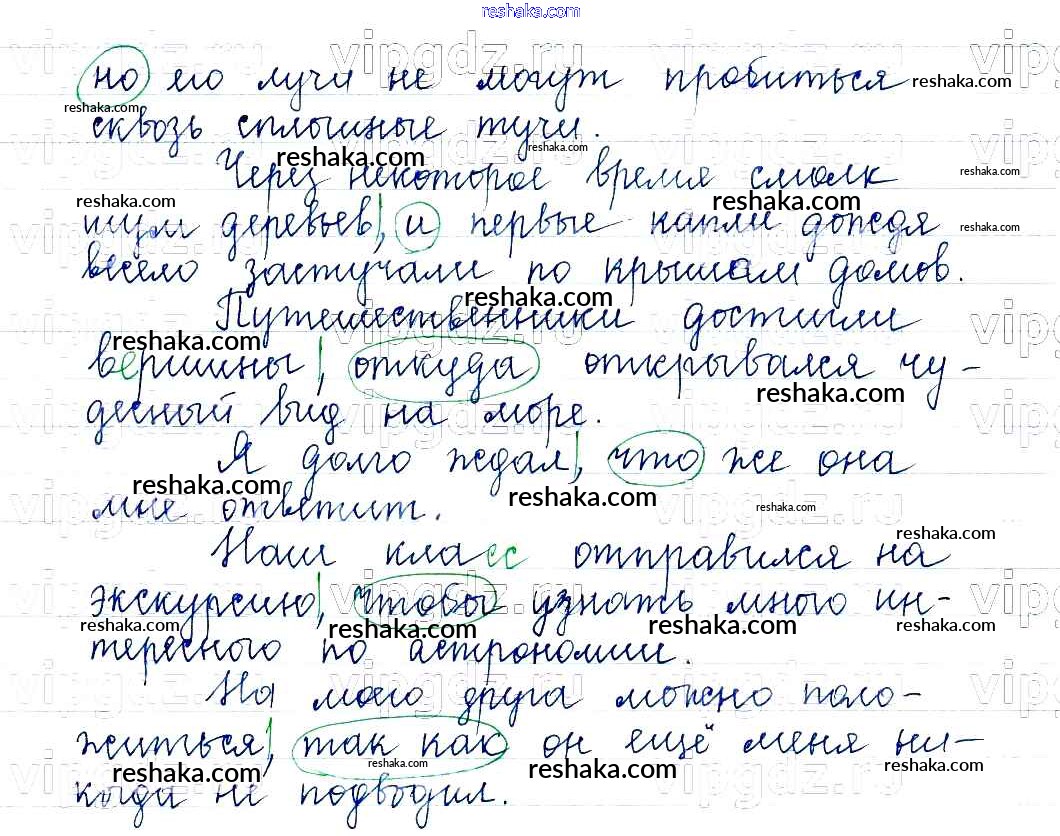 reshaka.com
но его лучи не могут пробиться
сквозь сплошные тучи.
Через некоторое время смолк
шум деревьев, и первые капли дождя
весело застучали по крышам домов.
Путешественники достигли
вершины, откуда открывался чу-
десный вид на море.
Я долго ждал, что же она
мне ответит.
Наш класс отправился на
экскурсию, чтобы узнать много ин-
тересного по астрономии.
На моего друга можно поло-
житься, так как он ещё меня ни-
когда не подводил.